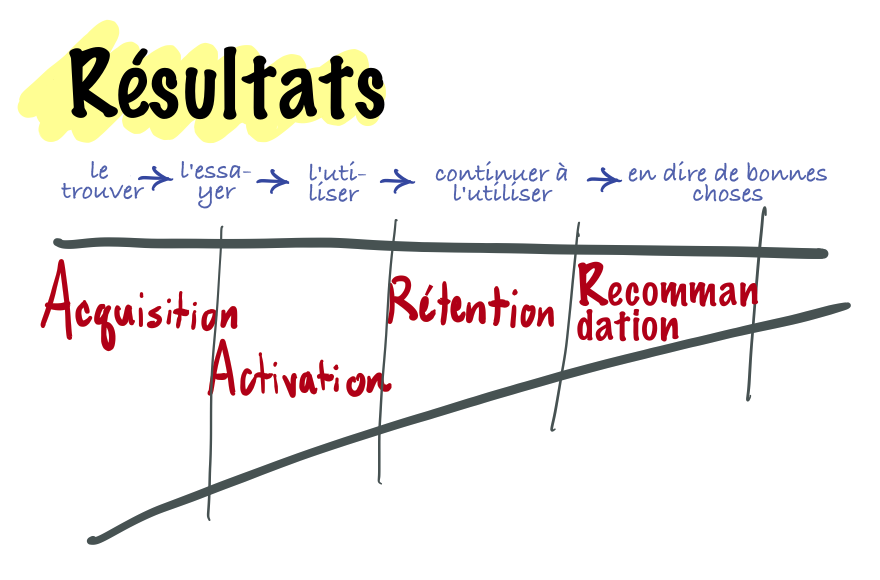 Résultats
le
trouver
l'essa-
yer
l'uti-
liser
continuer à
l'utiliser
en dire de bonnes
choses
Acquisition
Activation
Rétention
Recomman
dation